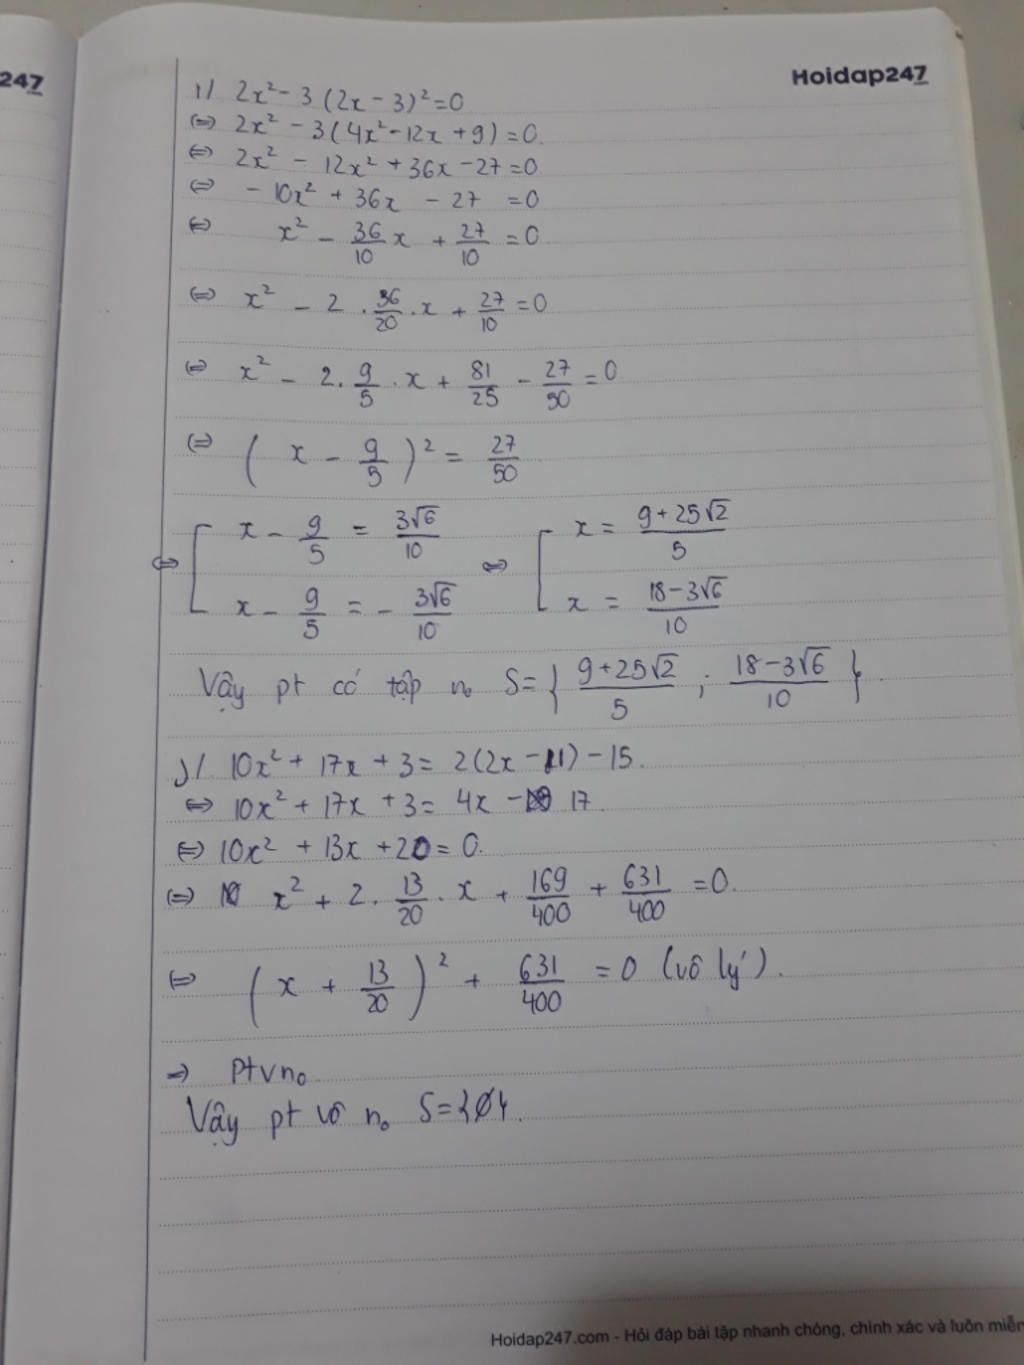 247
Hoidap247
1/ 2x² - 3(2x - 3)² = 0
(=) 2x² - 3(4x² - 12x + 9) = 0.
(=) 2x² - 12x² + 36x - 27 = 0
(=) - 10x² + 36x - 27 = 0
(=) x² - 36/10 x + 27/10 = 0
(=) x² - 2 . 36/20 . x + 27/10 = 0
(=) x² - 2. 9/5 . x + 81/25 - 27/50 = 0
(=) ( x - 9/5 )² = 27/50
⇔ [ x - 9/5 = 3√6/10 ⇔ [ x = (9 + 25√2)/5
x - 9/5 = - 3√6/10 x = (18 - 3√6)/10
Vậy pt có tập n₀ S = { (9 + 25√2)/5 ; (18 - 3√6)/10 } .
j/. 10x² + 17x + 3 = 2(2x - 1) - 15.
(=) 10x² + 17x + 3 = 4x - 17.
(=) 10x² + 13x + 20 = 0.
(=) x² + 2. 13/20 . x + 169/400 + 631/400 = 0.
(=) ( x + 13/20 )² + 631/400 = 0 (vô lý).
=) Ptvn₀
Vậy pt vô n₀ S = {∅}.
Hoidap247.com - Hỏi đáp bài tập nhanh chóng, chính xác và luôn miễn